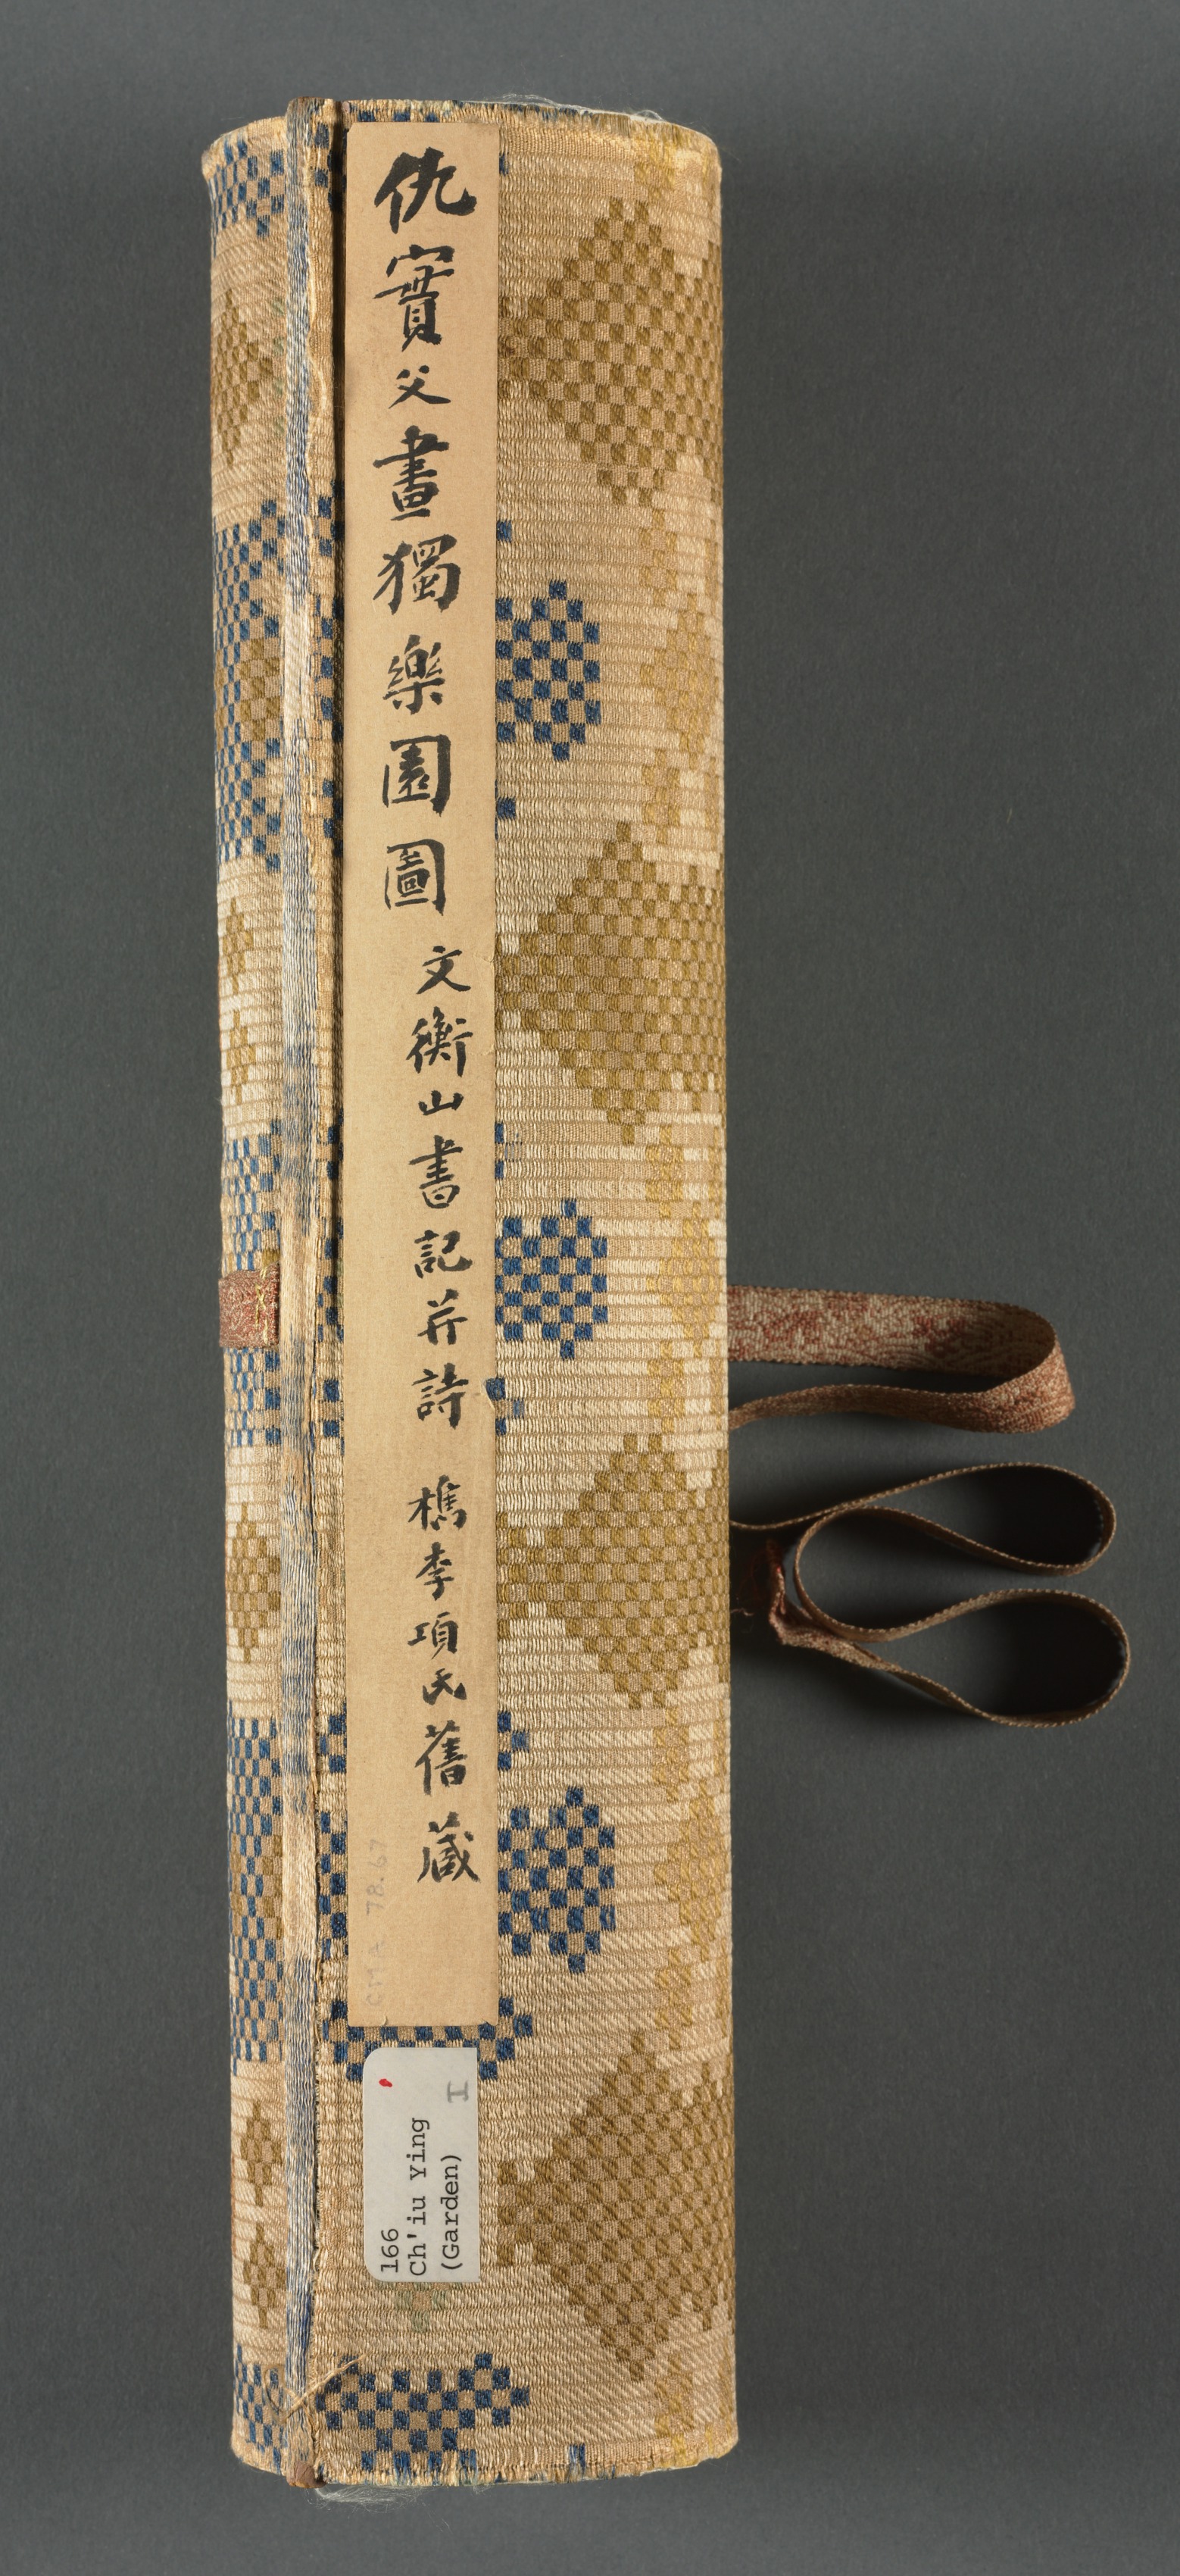 仇實父畫獨樂園圖 文衡山書記并詩 檇李項氏舊藏
CMA 78.67
166
Ch'iu Ying
(Garden)
I